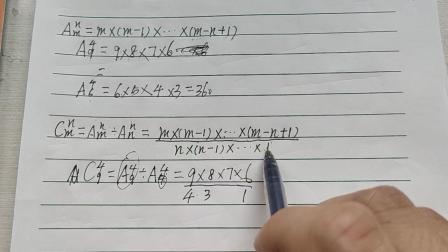 Aₘⁿ = m×(m-1)×⋯×(m-n+1)
A₉⁴ = 9×8×7×6
=
A₆⁴ = 6×5×4×3=360
Cₘⁿ = Aₘⁿ ÷ Aₙⁿ = m×(m-1)×⋯×(m-n+1)
n×(n-1)×⋯×1
C₉⁴ = A₉⁴ ÷ A₄⁴ = 9×8×7×6
4 3 1